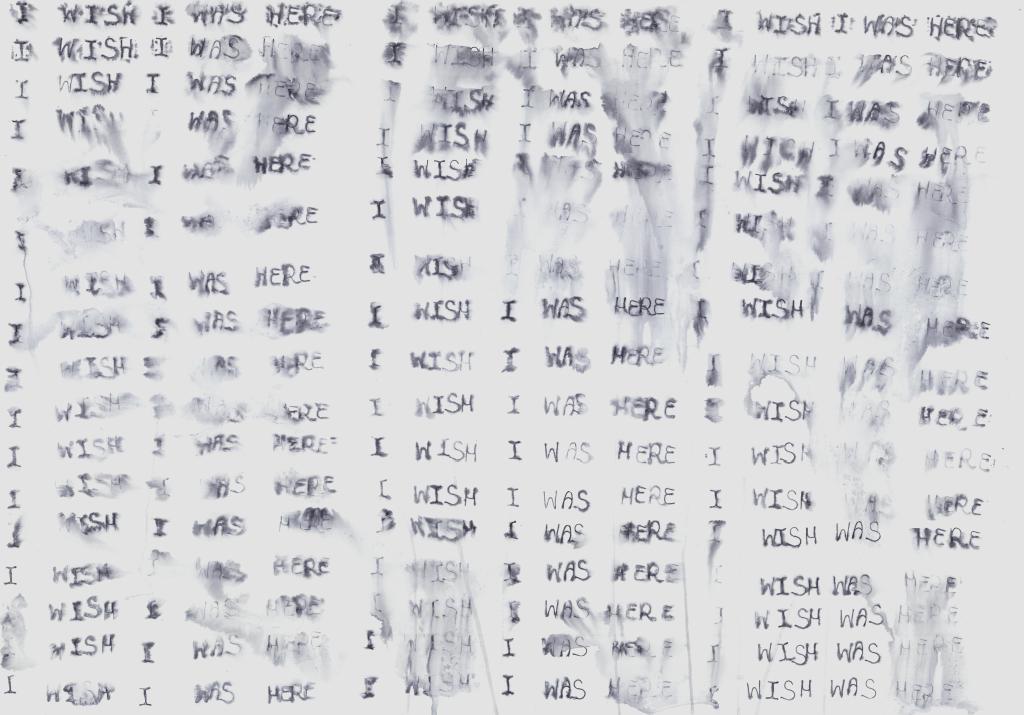 I WISH I WAS HERE I WISH I WAS HERE I WISH I WAS HERE
I WISH I WAS HERE I WISH I WAS HERE I WISH I WAS HERE
I WISH I WAS HERE I WISH I WAS HERE I WISH I WAS HERE
I WISH WAS HERE I WISH I WAS HERE I WISH I WAS HERE
I WISH I WAS HERE I WISH I WAS HERE I WISH I WAS HERE
I WISH I WAS HERE I WISH WAS HERE I WISH I WAS HERE
I WISH I WAS HERE I WISH I WAS HERE I WISH I WAS HERE
I WISH I WAS HERE I WISH I WAS HERE I WISH WAS HERE
I WISH I WAS HERE I WISH I WAS HERE I WISH WAS HERE
I WISH I WAS HERE I WISH I WAS HERE I WISH WAS HERE
I WISH I WAS HERE I WISH I WAS HERE I WISH WAS HERE
I WISH I WAS HERE I WISH I WAS HERE I WISH WAS HERE
I WISH I WAS HERE I WISH I WAS HERE I WISH WAS HERE
I WISH I WAS HERE I WISH I WAS HERE I WISH WAS HERE
I WISH I WAS HERE I WISH I WAS HERE I WISH WAS HERE
I WISH I WAS HERE I WISH I WAS HERE I WISH WAS HERE
I WISH I WAS HERE I WISH I WAS HERE I WISH WAS HERE